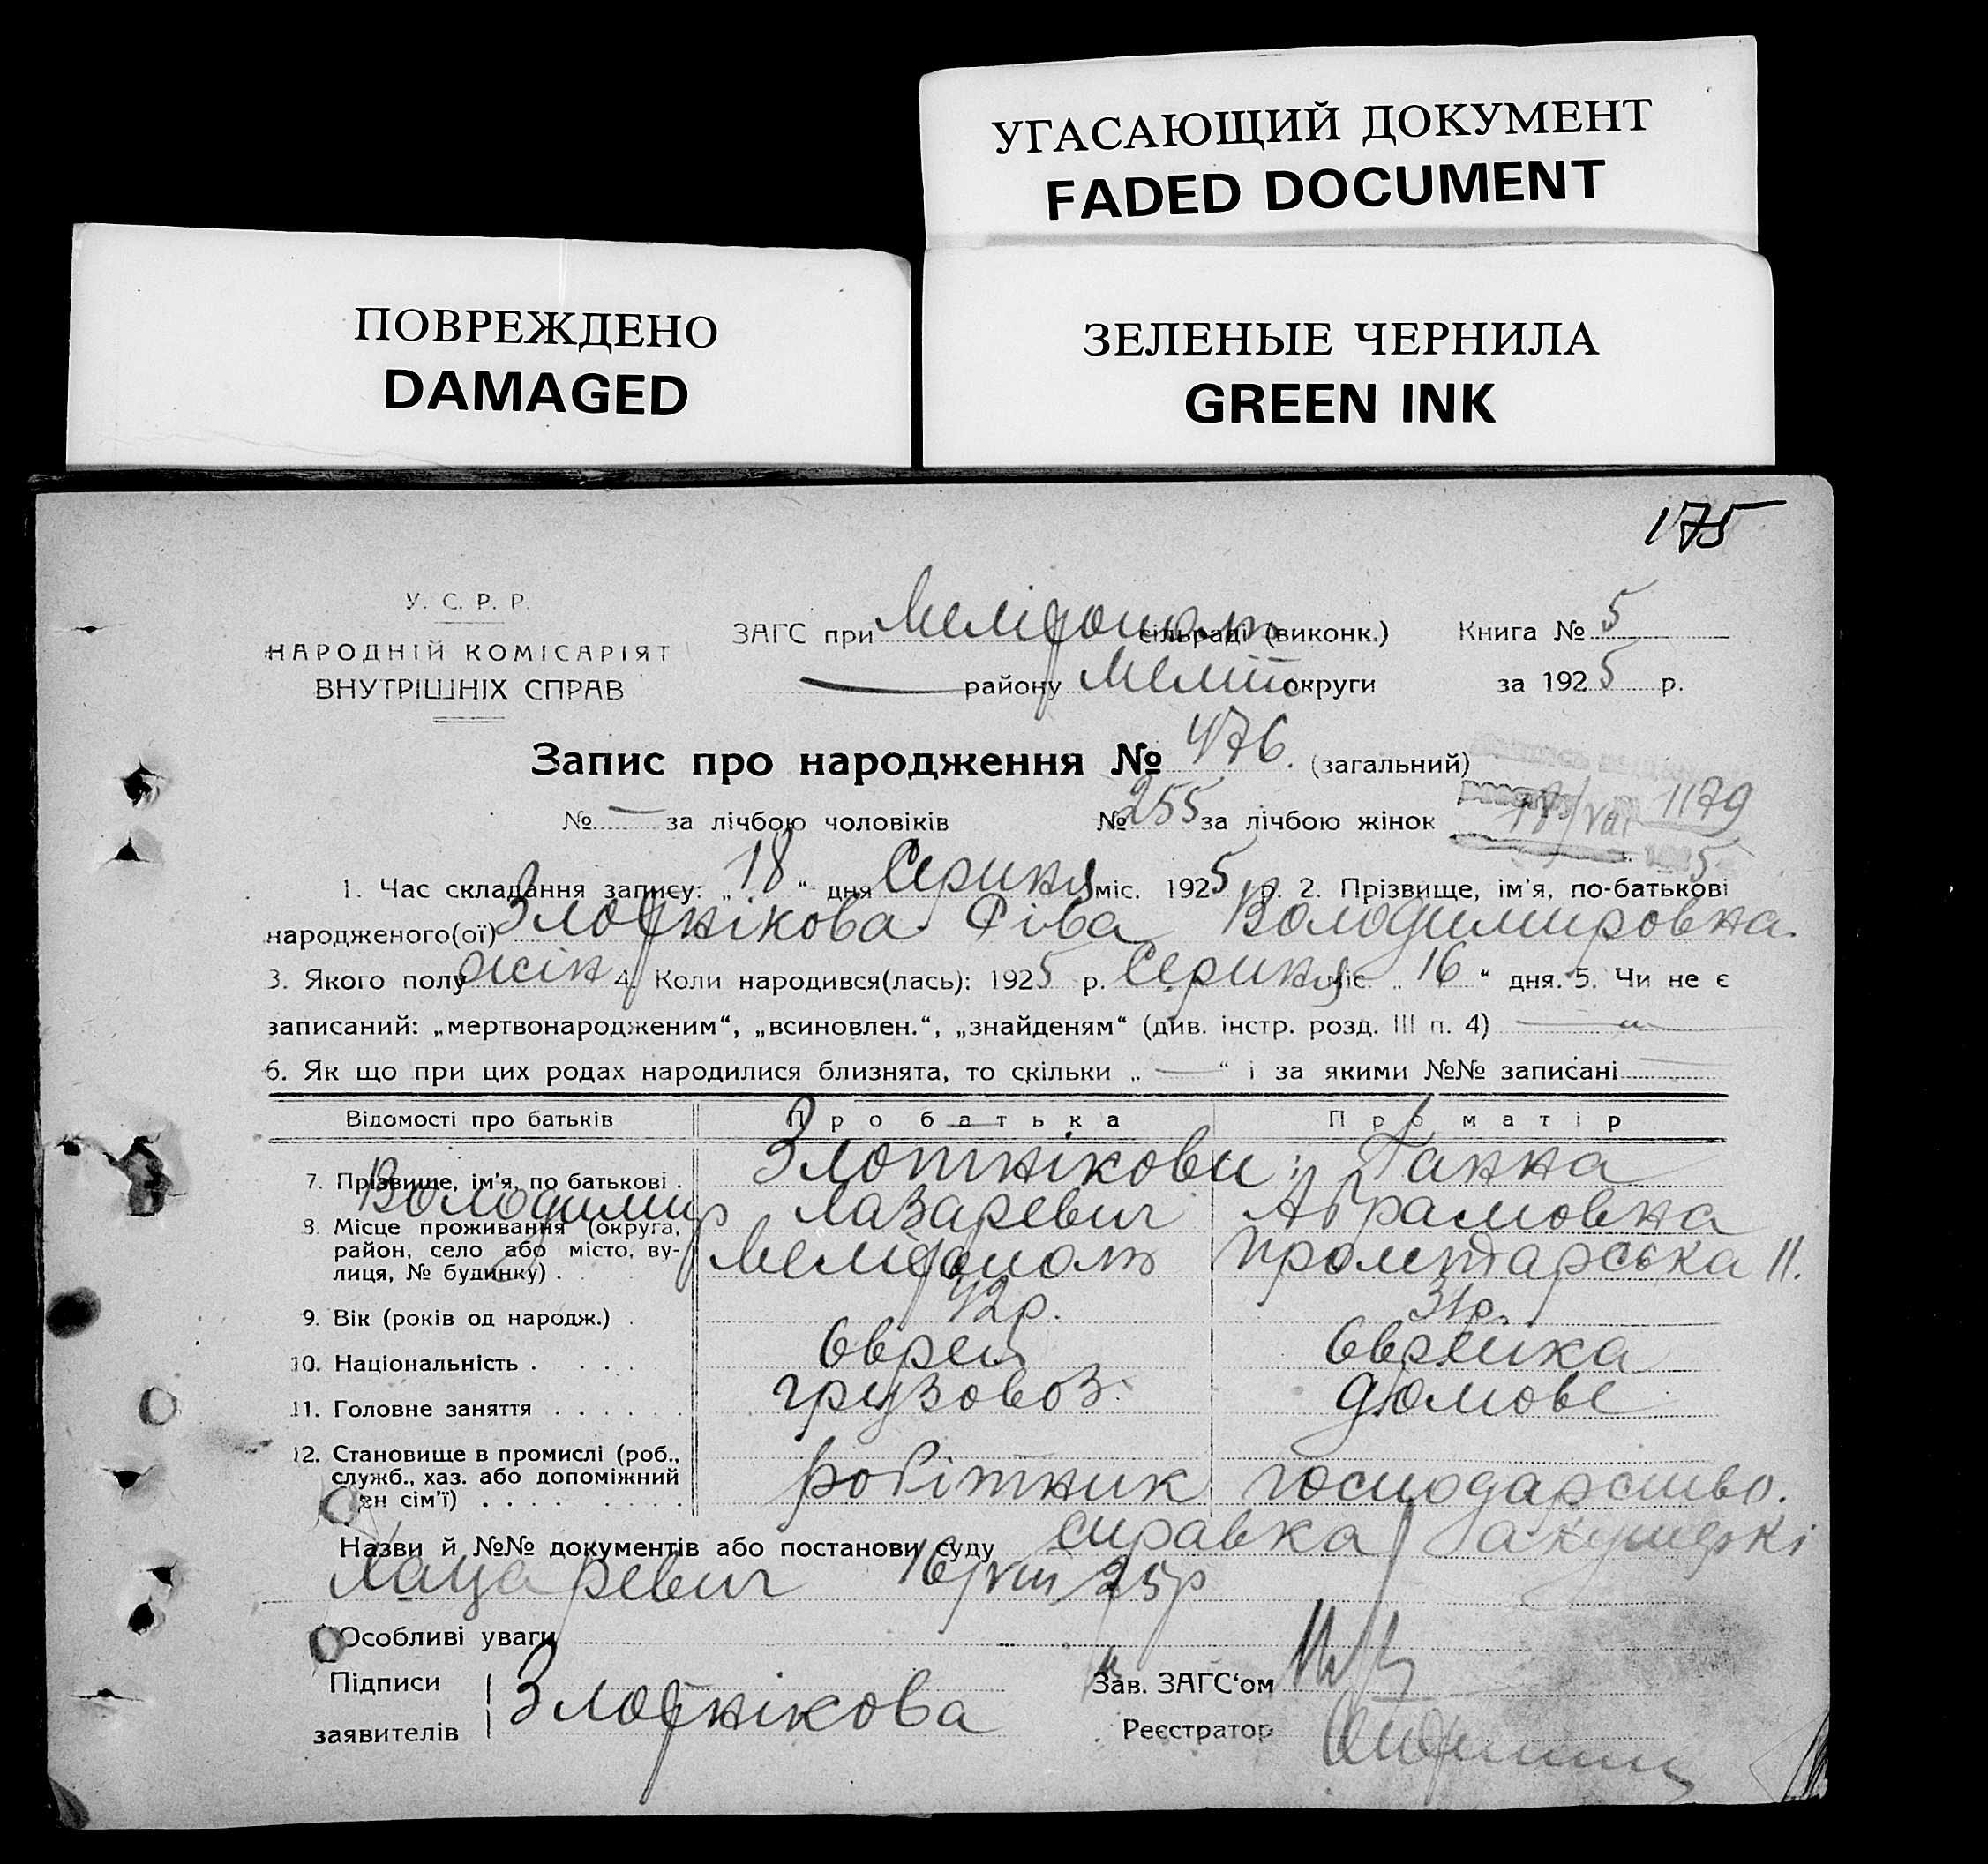 УГАСАЮЩИЙ ДОКУМЕНТ
FADED DOCUMENT
ПОВРЕЖДЕНО
DAMAGED
ЗЕЛЕНЫЕ ЧЕРНИЛА
GREEN INK
175
У. С. Р. Р.
НАРОДНІЙ КОМІСАРІЯТ
ВНУТРІШНІХ СПРАВ
ЗАГС при Мелітопол сільраді (виконк.) Книга № 5
— району Меліт округи за 1925 р.
Запис про народження № 476. (загальний)
№ — за лічбою чоловіків № 255 за лічбою жінок
18/VIII 1179
5
1. Час складання запису: „18“ дня Серпня міс. 1925 р. 2. Прізвище, ім'я, по-батькові
народженого(ої) Злотнікова Ріва Володимировна.
3. Якого полу жін 4. Коли народився(лась): 1925 р. Серпня міс. „16“ дня. 5. Чи не є
записаний: „мертвонародженим“, „всиновлен.“, „знайденям“ (див. інстр. розд. III п. 4) — „ —
6. Як що при цих родах народилися близнята, то скільки „ — “ і за якими №№ записані —
Відомості про батьків Про батька Про матір
7. Прізвище, ім'я, по батькові . Злотнікови; Ганна
Володимир Лазаревич Абрамовна
8. Місце проживання (округа,
район, село або місто, ву-
лиця, № будинку) . Мелітополь Пролетарська 11.
9. Вік (років од народж.) . 42р. 31р.
10. Національність . . . . Єврей Єврейка
11. Головне заняття . . . . . . грузовоз. домове
12. Становище в промислі (роб.,
служб., хаз. або допоміжний
ен сім'ї) . . . . . . . . . робітник господарство.
Назви й №№ документів або постанови суду справка акушерки
Лацаревич 16/VIII 25р
Особливі уваги
Підписи
заявителів Злотнікова
Зав. ЗАГС'ом
Реєстратор